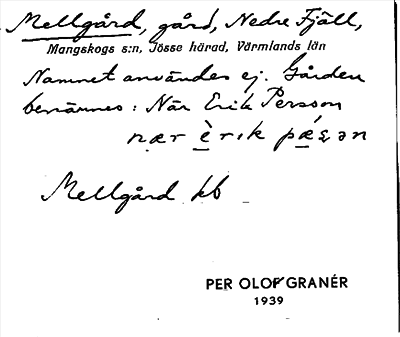 Mellgård, gård, Nedre Fjäll,
Mangskogs s:n, Jösse härad, Värmlands län
Namnet användes ej. Gården
benämnes: När Erik Persson
nær èrik pǽsən
Mellgård kb
PER OLOF GRANÉR
1939